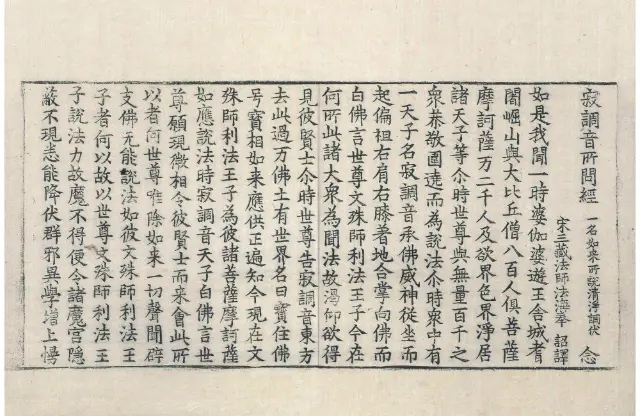 寂調音所問經 一名如来所說清淨調伏 念
宋三藏法師法海奉 詔譯
如是我聞一時婆伽婆遊王舎城耆
闍崛山與大比丘僧八百人俱菩薩
摩訶薩万二千人及欲界色界淨居
諸天子等尒時世尊與無量百千之
衆恭敬圍遶而為說法尒時衆中有
一天子名寂調音承佛威神從坐而
起偏袒右肩右膝著地合掌向佛而
白佛言世尊文殊師利法王子今在
何所此諸大衆為聞法故渴仰欲得
見彼賢士尒時世尊告寂調音東方
去此過万佛土有世界名曰寶住佛
号寶相如来應供正遍知今現在文
殊師利法王子為彼諸菩薩摩訶薩
如應說法時寂調音天子白佛言世
尊願現微相令彼賢士而来會此所
以者何世尊唯除如来一切聲聞辟
支佛无能說法如彼文殊師利法王
子者何以故以世尊文殊師利法王
子說法力故魔不得便令諸魔宫隱
蔽不現悉能降伏群邪異學増上慢